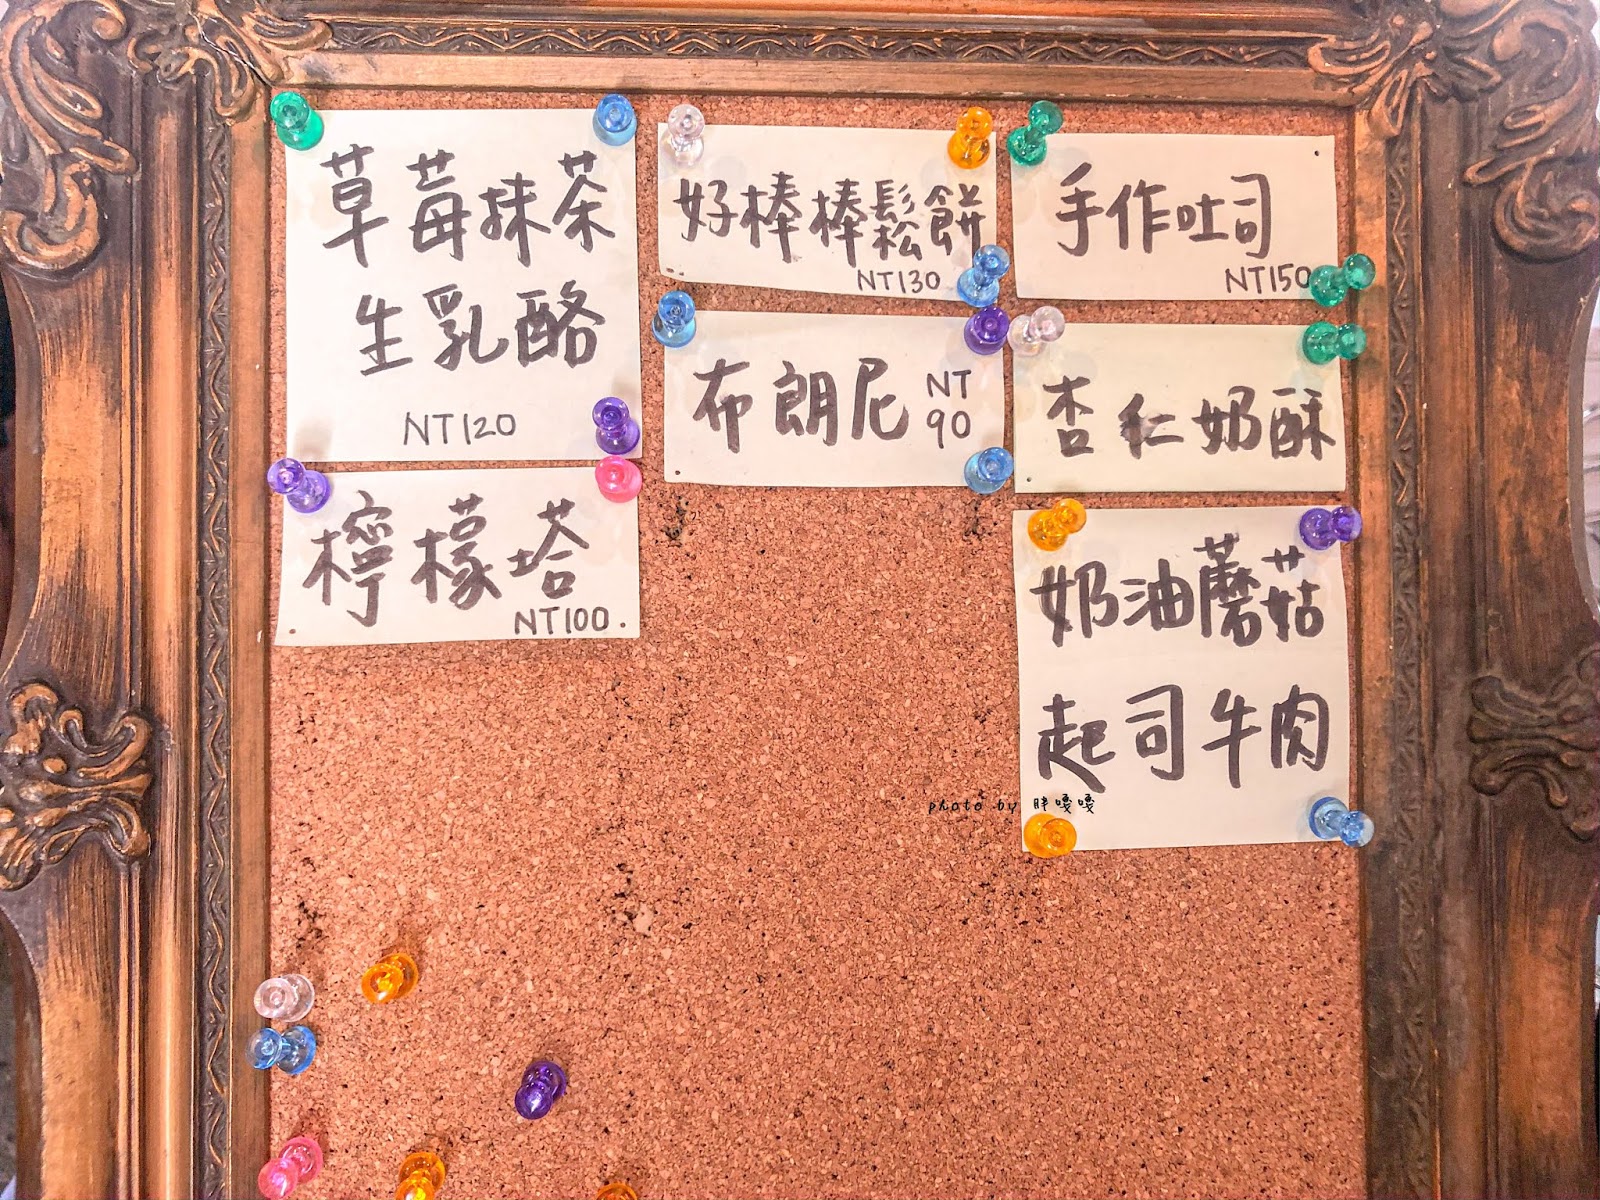 草莓抹茶
生乳酪
NT120
檸檬塔
NT100.
好棒棒鬆餅
NT130
布朗尼
NT
90
手作吐司
NT150
杏仁奶酥
奶油蘑菇
起司牛肉
photo by 胖嘎嘎